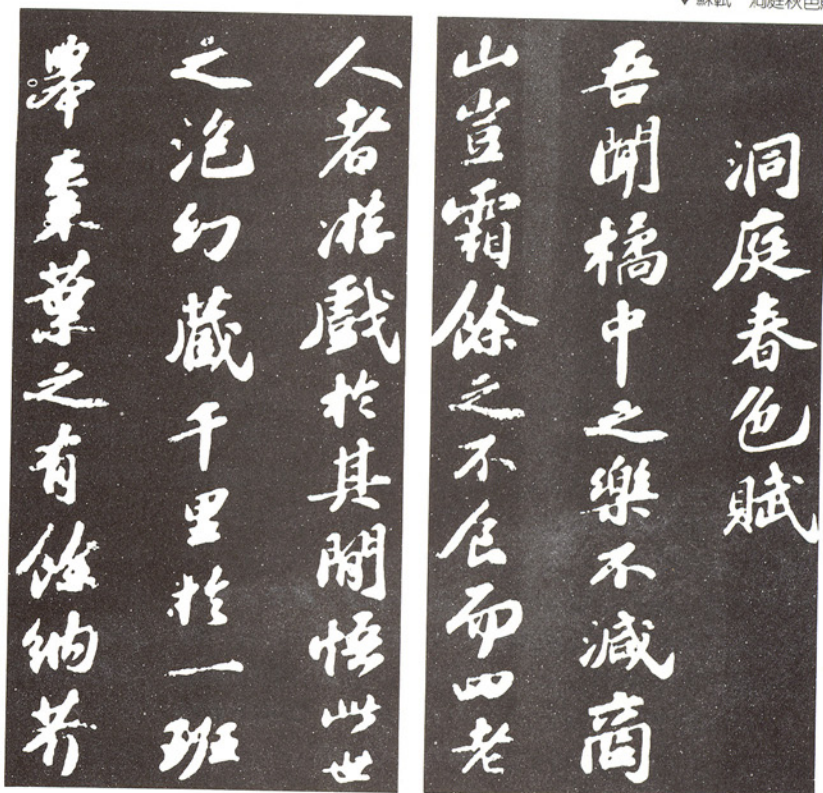 蘇軾 洞庭秋色
洞庭春色賦
吾聞橘中之樂不減商
山豈霜餘之不食而四老
人者游戲於其間悟此世
之泡幻藏千里於一班
舉棗葉之有餘納芥